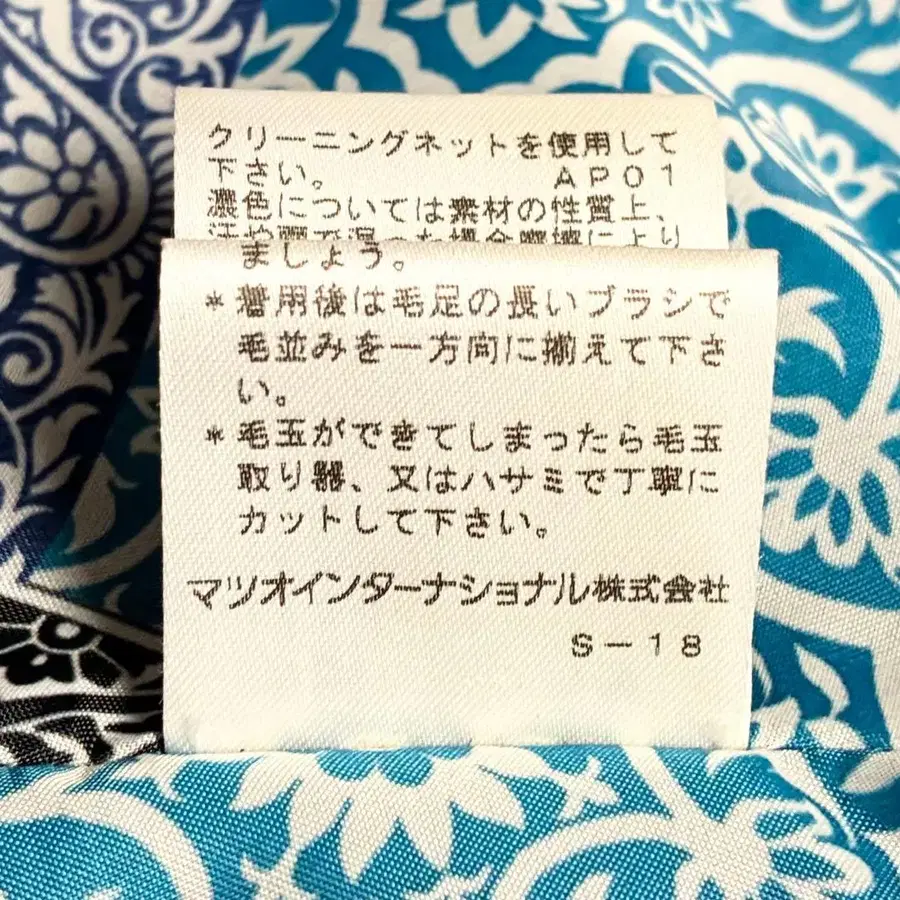 クリーニングネットを使用して
下さい。 AP01
濃色については素材の性質上、
ましょう。
＊着用後は毛足の長いブラシで
毛並みを一方向に揃えて下さ
い。
＊毛玉ができてしまったら毛玉
取り器、又はハサミで丁寧に
カットして下さい。
マツオインターナショナル株式会社
S-18